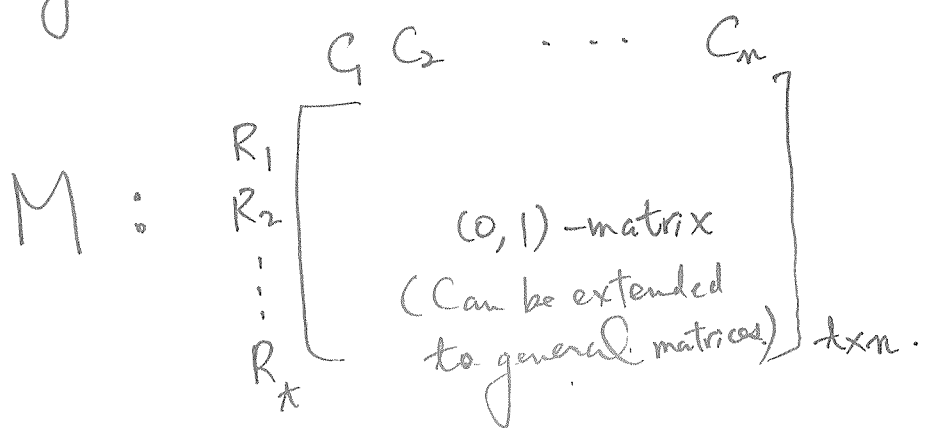 C₁ C₂ · · · Cₙ
R₁
M : R₂ (0, 1) -matrix
⋮ (Can be extended
Rₜ to general matrices.) t×n.